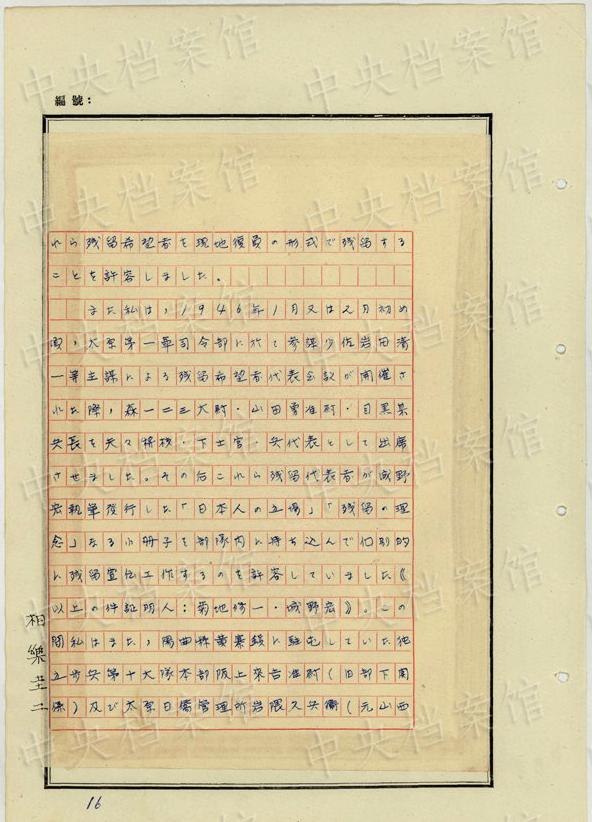 編號：
れら残留希望者を現地復員の形式で残留する
ことを許容しました。
また私は，1946年1月又は2月初め
頃，太原第一軍司令部に於て参謀少佐岩田清
一等主謀による残留希望者代表会議が開催さ
れた際，森一二三大尉・山田勇准尉・目黒某
兵長を夫々将校・下士官・兵代表として出席
させました。その后これら残留代表者が城野
宏執筆発行した「日本人の立場」「残留の理
念」なる小册子を部隊内に持ち込んで個別的
に残留宣伝工作するのを許容していました《
以上の件証明人：菊地修一・城野宏》。この
間私はまた，陽曲県黄寨鎮に駐屯していた独
立歩兵第十大隊本部阪上来吉准尉（旧部下関
係）及び太原日僑管理所岩隈久兵衛（元山西
相樂圭二
16
中央档案馆